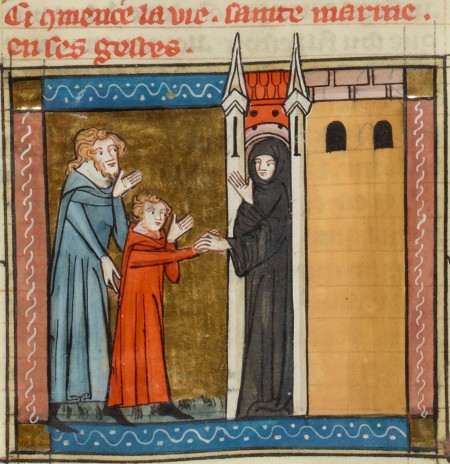 Ci 9mence la vie . sainte marine .
en ses gestes .